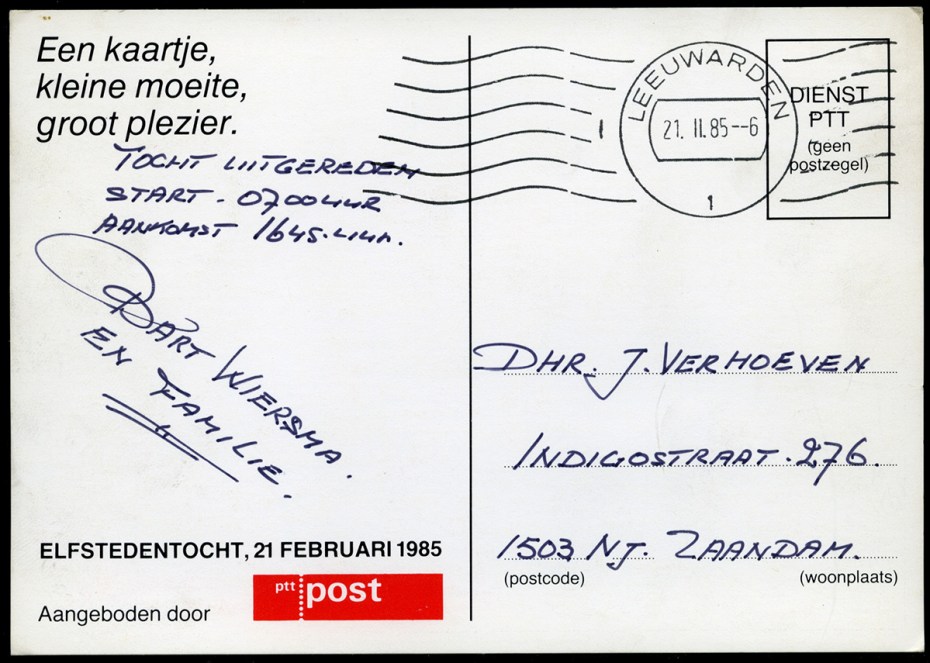 Een kaartje,
kleine moeite,
groot plezier.
TOCHT UITGEREDEN
START - 0700 UUR
AANKOMST 1645. UUR.
BART WIERSMA.
EN FAMILIE.
ELFSTEDENTOCHT, 21 FEBRUARI 1985
Aangeboden door
ptt post
LEEUWARDEN
21. II. 85--6
1
DIENST
PTT
(geen
postzegel)
DHR. J. VERHOEVEN
INDIGOSTRAAT. 276.
1503 NJ. ZAANDAM.
(postcode) (woonplaats)